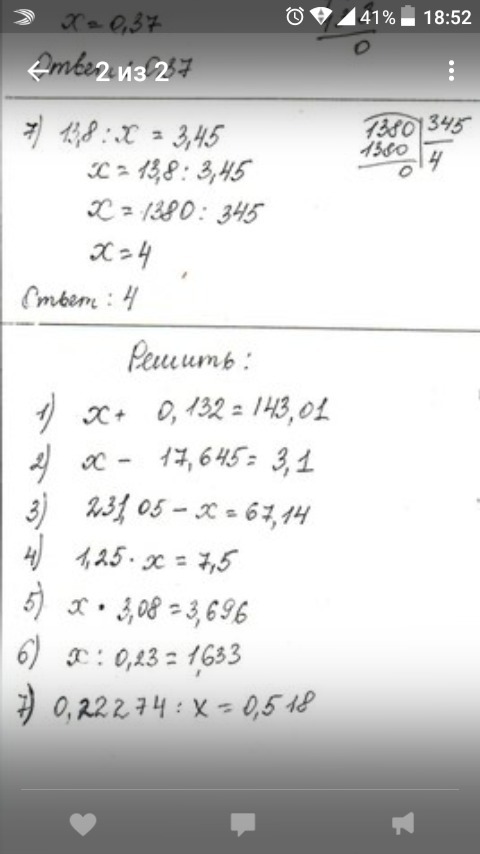 41% 18:52
x = 0,37
0
Ответ: 0,37
2 из 2
7) 13,8 : x = 3,45
x = 13,8 : 3,45
x = 1380 : 345
x = 4
1380 345
1380 4
0
Ответ : 4
Решить :
1) x + 0,132 = 143,01
2) x - 17,645 = 3,1
3) 231,05 - x = 67,14
4) 1,25 · x = 7,5
5) x · 3,08 = 3,696
6) x : 0,23 = 1,633
7) 0,22274 : x = 0,518